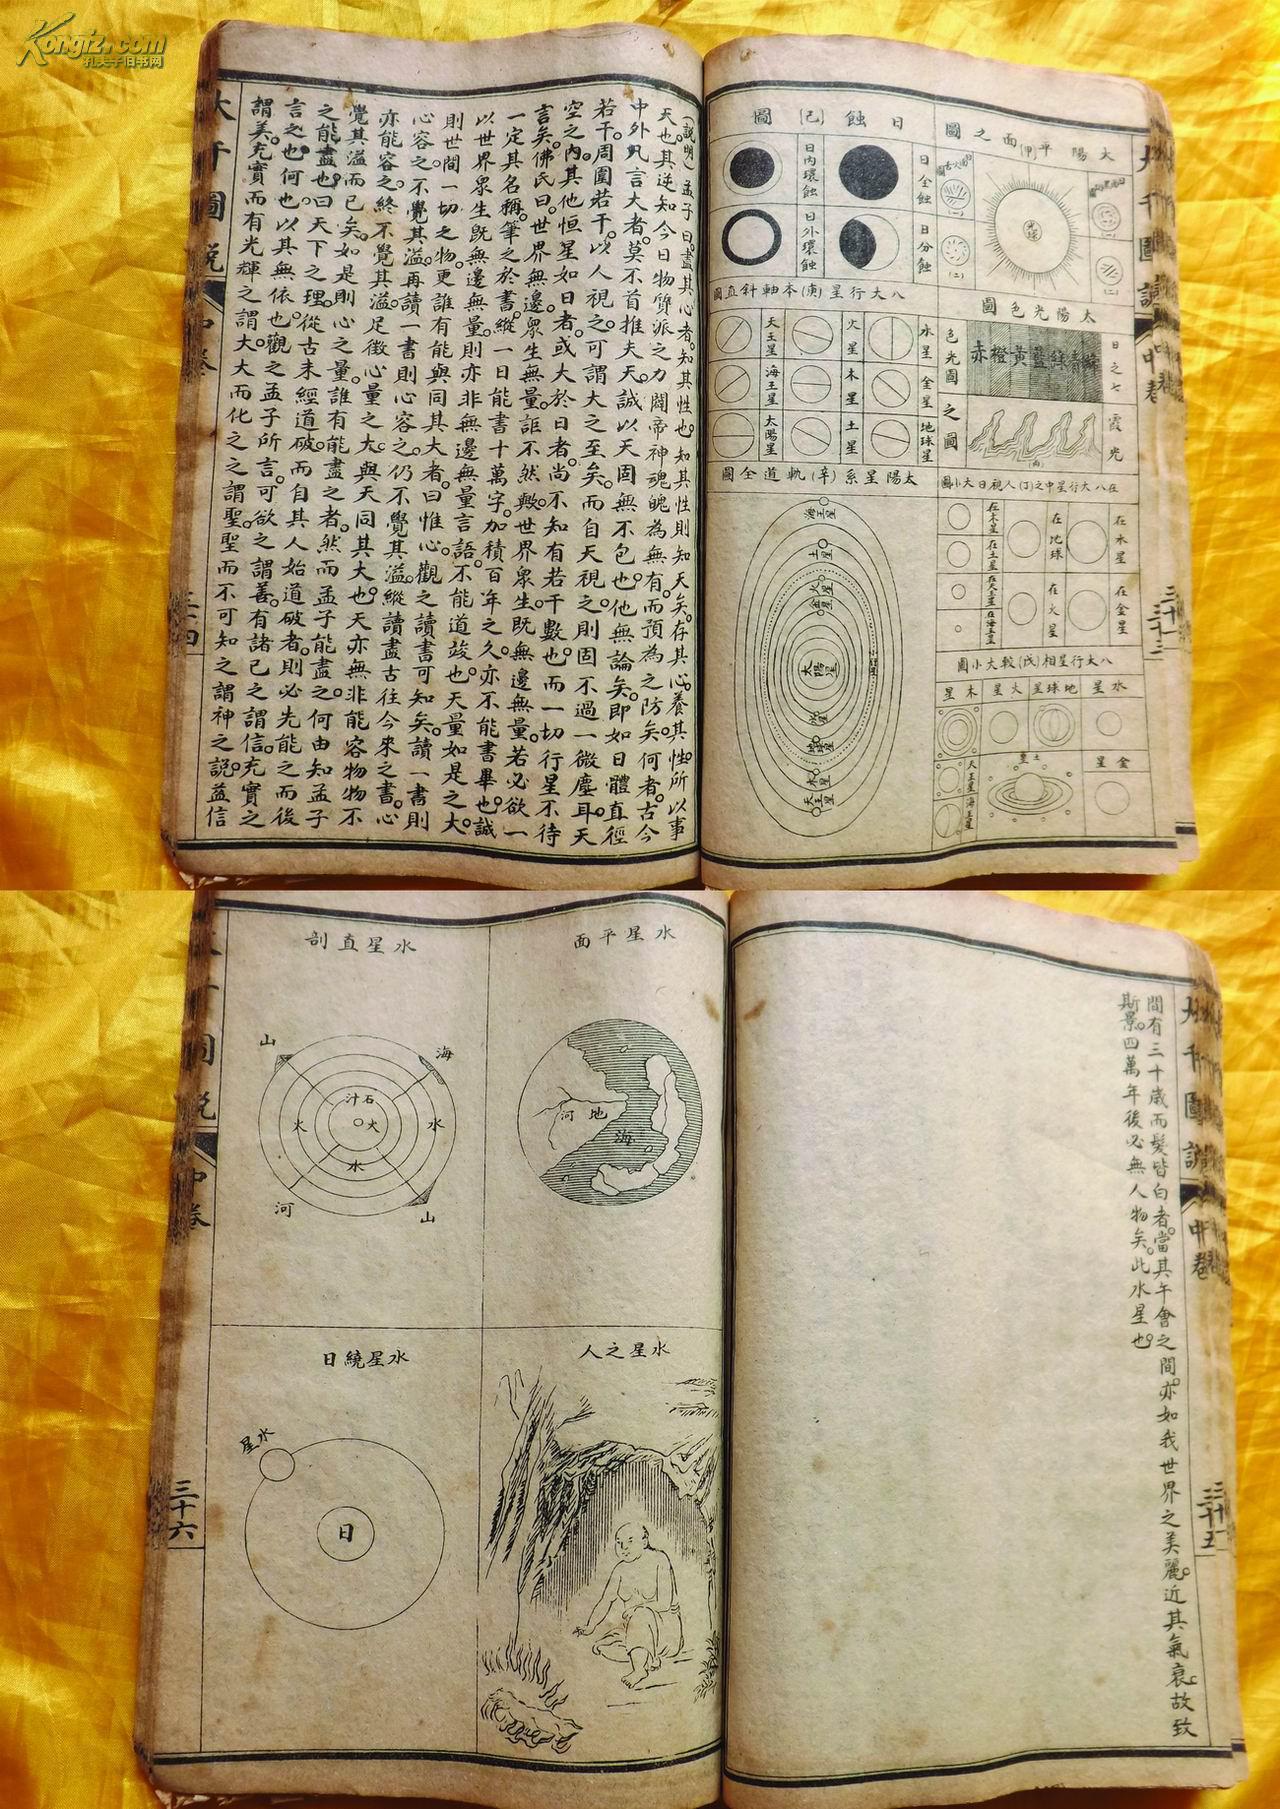 Kongfz.com
孔夫子旧书网
大千圖說
中卷
三十三
太陽平(甲)面之圖
光球
太陽光色圖
日之七色光圖
赤橙黃藍綠青紫
霞光之圖
(丙)
在八大行星中之(丁)人視日大小圖
在水星
在金星
在地球
在火星
在木星
在土星
在天王星
在海王星
八大行星相(戊)較大小圖
水星
地球星
火星
木星
金星
土星
天王星
海王星
日蝕(己)圖
日全蝕
日分蝕
日內環蝕
日外環蝕
八大行星(庚)本軸斜直圖
水星
金星
地球星
火星
木星
土星
天王星
海王星
太陽星
太陽星系(辛)軌道全圖
海王星
土星
火星
金星
太陽星
地球星
水星
天王星
(說明)孟子曰。盡其心者。知其性也。知其性則知天矣。存其心。養其性。所以事
天也。其逆知今日物質派之力闢帝神魂魄為無有。而預為之防矣。何者。古今
中外。凡言大者。莫不首推夫天。誠以天固無不包也。他無論矣。即如日體直徑
若干。周圍若干。以人視之。可謂大之至矣。而自天視之。則固不過一微塵耳。天
空之內。其他恒星如日者。或大於日者。尚不知有若干數也。而一切行星不待
言矣。佛氏曰。世界無邊。眾生無量。詎不然歟。世界眾生。既無邊無量。若必欲一
一定其名稱。筆之於書。縱一日能書十萬字。加積百年之久。亦不能書畢也。誠
以世界眾生。既無邊無量。則亦非無邊無量言語。不能道竣也。天量如是之大。
則世間一切之物。更誰有能與同其大者。曰惟心。觀之讀書可知矣。讀一書則
心容之。不覺其溢。再讀一書則心容之。仍不覺其溢。縱讀盡古往今來之書。心
亦能容之。終不覺其溢。足徵心量之大。與天同其大也。天亦無非能容物物不
覺其溢而已矣。如是則心之量。誰有能盡之者。然而孟子能盡之。何由知孟子
之能盡也。曰天下之理。從古未經道破。而自其人始道破者。則必先能之而後
言之也。何也。以其無依也。觀之孟子所言。可欲之謂善。有諸己之謂信。充實之
謂美。充實而有光輝之謂大。大而化之之謂聖。聖而不可知之謂神之說。益信
大千圖說
中卷
三十四
大千圖說
中卷
三十五
間有三十歲而髮皆白者。當其午會之間。亦如我世界之美麗。近其氣衰。故致
斯景。四萬年後。必無人物矣。此水星也。
水星平面
地
河
海
水星直剖
山
海
石汁
火
火
水
水
河
山
水星之人
水星繞日
水星
日
大千圖說
中卷
三十六